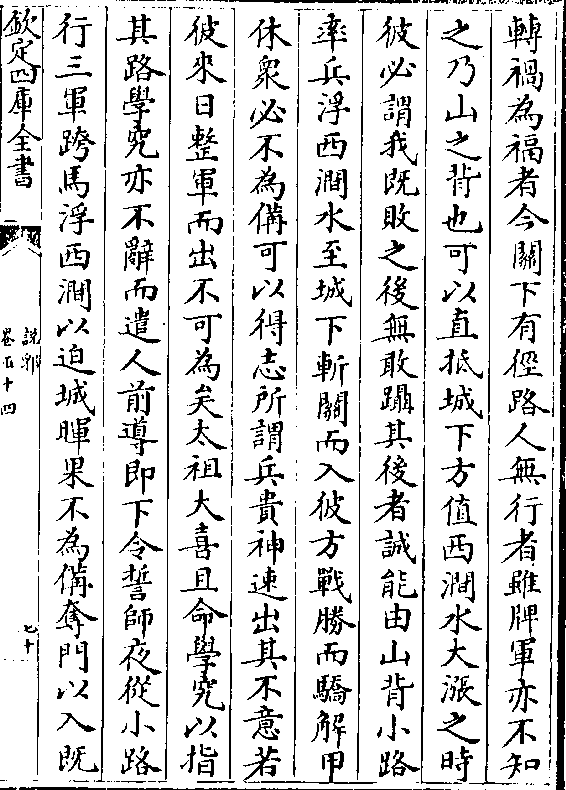 轉禍為福者今關下有徑路人無行者雖牌軍亦不知
之乃山之背也可以直抵城下方值西澗水大漲之時
彼必謂我既敗之後無敢躡其後者誠能由山背小路
率兵浮西澗水至城下斬關而入彼方戰勝而驕解甲
休衆必不為備可以得志所謂兵貴神速出其不意若
彼來日整軍而出不可為矣太祖大喜且命學究以指
其路學究亦不辭而遣人前導即下令誓師夜從小路
行三軍跨馬浮西澗以迫城暉果不為備奪門以入既
欽定四庫全書
說郛
卷五十四
七十